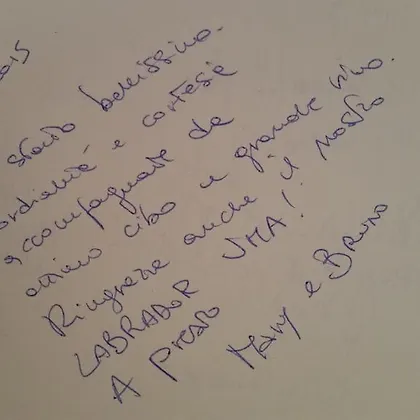 015
stato benissimo.
ordialità e cortesia
accompagnate da
ottimo cibo e grande vino.
Ringrazia anche il nostro
LABRADOR UMA!
A presto
Mary e Bruno